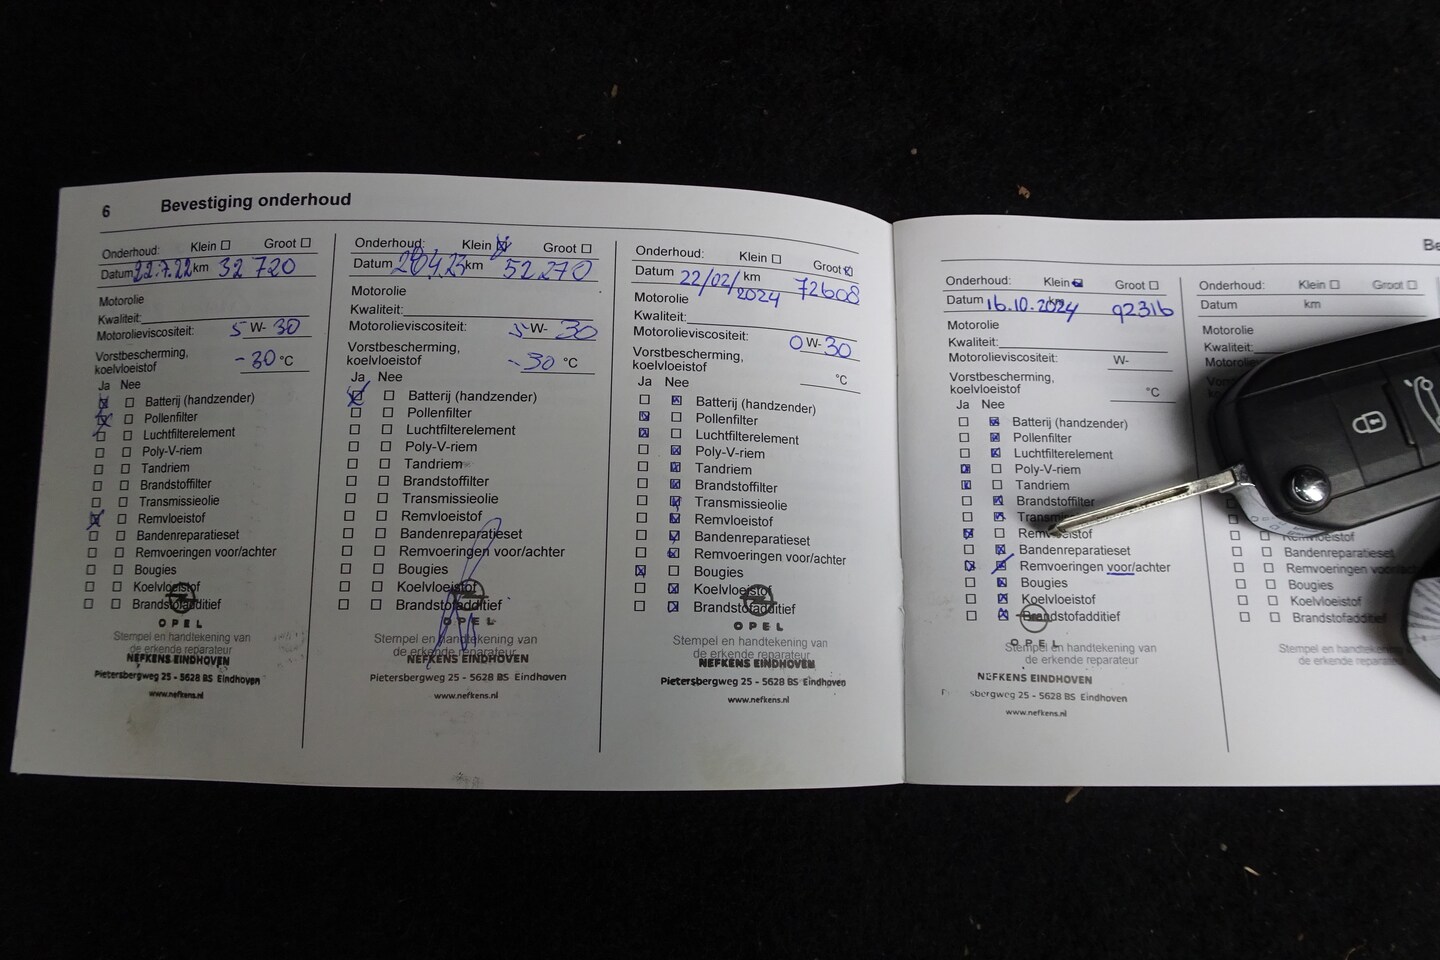 6 Bevestiging onderhoud
Onderhoud: Klein Groot
Datum 22.7.22 km 32 720
Motorolie
Kwaliteit:
Motorolieviscositeit: 5 W- 30
Vorstbescherming,
koelvloeistof -30 °C
Ja Nee
Batterij (handzender)
Pollenfilter
Luchtfilterelement
Poly-V-riem
Tandriem
Brandstoffilter
Transmissieolie
Remvloeistof
Bandenreparatieset
Remvoeringen voor/achter
Bougies
Koelvloeistof
Brandstofadditief
OPEL
Stempel en handtekening van
de erkende reparateur
NEFKENS EINDHOVEN
Pietersbergweg 25 - 5628 BS Eindhoven
www.nefkens.nl
Onderhoud: Klein Groot
Datum km 52 270
Motorolie
Kwaliteit:
Motorolieviscositeit: 5 W- 30
Vorstbescherming,
koelvloeistof -30 °C
Ja Nee
Batterij (handzender)
Pollenfilter
Luchtfilterelement
Poly-V-riem
Tandriem
Brandstoffilter
Transmissieolie
Remvloeistof
Bandenreparatieset
Remvoeringen voor/achter
Bougies
Koelvloeistof
Brandstofadditief
OPEL
Stempel en handtekening van
de erkende reparateur
NEFKENS EINDHOVEN
Pietersbergweg 25 - 5628 BS Eindhoven
www.nefkens.nl
Onderhoud: Klein Groot
Datum 22/02/2024 km 72608
Motorolie
Kwaliteit:
Motorolieviscositeit: 0 W- 30
Vorstbescherming,
koelvloeistof °C
Ja Nee
Batterij (handzender)
Pollenfilter
Luchtfilterelement
Poly-V-riem
Tandriem
Brandstoffilter
Transmissieolie
Remvloeistof
Bandenreparatieset
Remvoeringen voor/achter
Bougies
Koelvloeistof
Brandstofadditief
OPEL
Stempel en handtekening van
de erkende reparateur
NEFKENS EINDHOVEN
Pietersbergweg 25 - 5628 BS Eindhoven
www.nefkens.nl
Onderhoud: Klein Groot
Datum 16.10.2024 km 92316
Motorolie
Kwaliteit:
Motorolieviscositeit: W-
Vorstbescherming,
koelvloeistof °C
Ja Nee
Batterij (handzender)
Pollenfilter
Luchtfilterelement
Poly-V-riem
Tandriem
Brandstoffilter
Remvloeistof
Bandenreparatieset
Remvoeringen voor/achter
Bougies
Koelvloeistof
Brandstofadditief
OPEL
Stempel en handtekening van
de erkende reparateur
NEFKENS EINDHOVEN
sbergweg 25 - 5628 BS Eindhoven
www.nefkens.nl
Be
Onderhoud: Klein Groot
Datum km
Motorolie
Kwaliteit:
Bandenreparatieset
Remvoeringen voor/
Bougies
Koelvloeistof
Brandstofadditief
Stempel en
de erkende